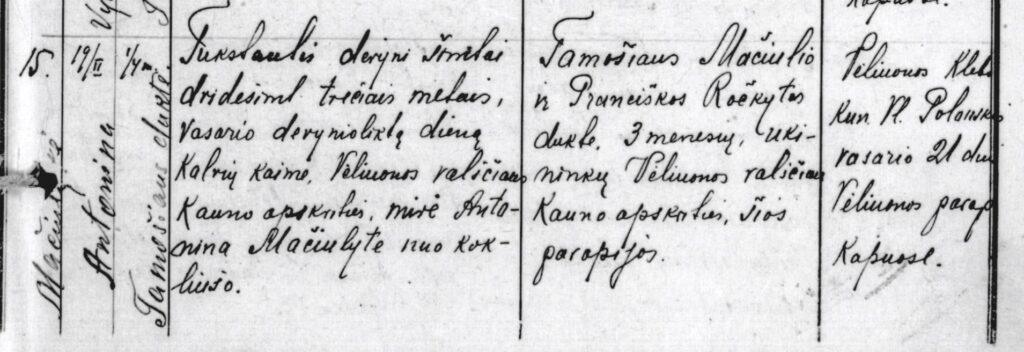 15.
Mačiulytė
19/II
Antonina
1/4 m.
Tamošiaus duktė
Tukstantis devyni šimtai
dvidešimt trečiais metais,
vasario devynioliktą dieną
Kalvių kaime, Veliuonos valsčiaus
Kauno apskrities, mirė Anta-
nina Mačiulytė nuo kok-
liušo.
Tamošiaus Mačiulio
ir Pranciškos Ročkytės
duktė, 3 menesių, uki-
ninkų Veliuonos valsčiaus
Kauno apskrities, šios
parapijos.
Veliuonos Kleb.
kun. Vl. Polonskis
vasario 21 d.
Veliuonos parap
Kapuose.